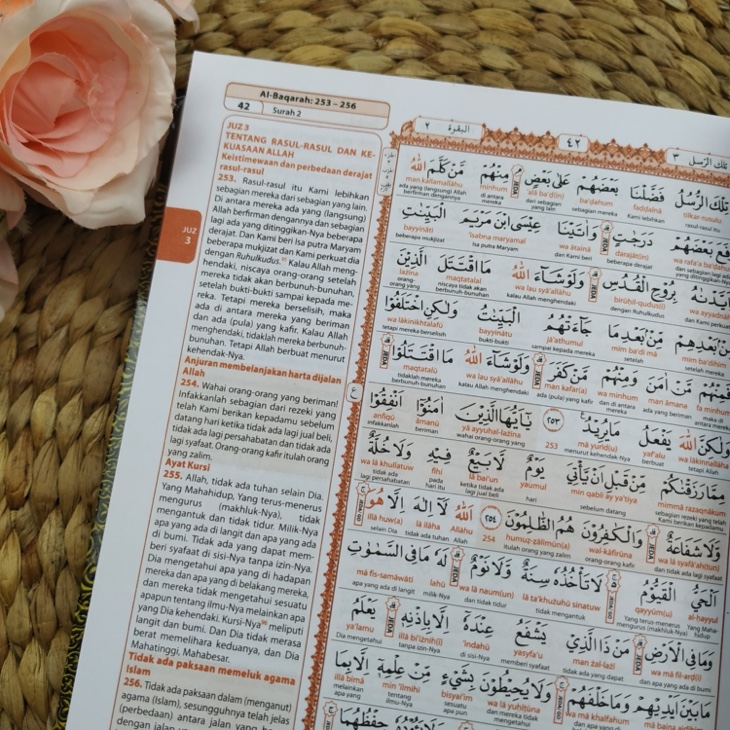 Al-Baqarah: 253 – 256
42
Surah 2
JUZ 3
TENTANG RASUL-RASUL DAN KE-
KUASAAN ALLAH
Keistimewaan dan perbedaan derajat
rasul-rasul
253. Rasul-rasul itu Kami lebihkan
sebagian mereka dari sebagian yang lain.
Di antara mereka ada yang (langsung)
Allah berfirman dengannya dan sebagian
lagi ada yang ditinggikan-Nya beberapa
derajat. Dan Kami beri Isa putra Maryam
beberapa mukjizat dan Kami perkuat dia
dengan Ruhulkudus. Kalau Allah meng-
hendaki, niscaya orang-orang setelah
mereka tidak akan berbunuh-bunuhan,
setelah bukti-bukti sampai kepada me-
reka. Tetapi mereka berselisih, maka
ada di antara mereka yang beriman
dan ada (pula) yang kafir. Kalau Allah
menghendaki, tidaklah mereka berbunuh-
bunuhan. Tetapi Allah berbuat menurut
kehendak-Nya.
Anjuran membelanjakan harta dijalan
Allah
254. Wahai orang-orang yang beriman!
Infakkanlah sebagian dari rezeki yang
telah Kami berikan kepadamu sebelum
datang hari ketika tidak ada lagi jual beli,
tidak ada lagi persahabatan dan tidak ada
lagi syafaat. Orang-orang kafir itulah orang
yang zalim.
Ayat Kursi
255. Allah, tidak ada tuhan selain Dia.
Yang Mahahidup, Yang terus-menerus
mengurus (makhluk-Nya), tidak
mengantuk dan tidak tidur. Milik-Nya
apa yang ada di langit dan apa yang ada
di bumi. Tidak ada yang dapat mem-
beri syafaat di sisi-Nya tanpa izin-Nya.
Dia mengetahui apa yang di hadapan
mereka dan apa yang di belakang mereka,
dan mereka tidak mengetahui sesuatu
apapun tentang ilmu-Nya melainkan apa
yang Dia kehendaki. Kursi-Nya meliputi
langit dan bumi. Dan Dia tidak merasa
berat memelihara keduanya, dan Dia
Mahatinggi, Mahabesar.
Tidak ada paksaan memeluk agama
Islam
256. Tidak ada paksaan dalam (menganut)
agama (Islam), sesungguhnya telah jelas
(perbedaan) antara jalan yang
JUZ
3
تلك الرسل ٣
٤٢
البقرة ٢
تِلْكَ الرُّسُلُ فَضَّلْنَا بَعْضَهُمْ عَلٰى بَعْضٍ مِنْهُمْ مَّنْ كَلَّمَ اللّٰهُ
tilkar-rusulu faḍḍalnā ba'ḍahum alā ba'ḍ(in) minhum man kallamallāhu
rasul-rasul itu Kami lebihkan sebagian mereka dari sebagian yang lain di antara mereka ada yang (langsung) Allah berfirman dengannya
بَعْضَهُمْ دَرَجٰتٍ وَاٰتَيْنَا عِيْسَى ابْنَ مَرْيَمَ الْبَيِّنٰتِ
darajāt(in) wa ātainā 'īsabna maryamal bayyināti
beberapa derajat dan Kami beri Isa putra Maryam beberapa mukjizat
بِرُوْحِ الْقُدُسِ وَلَوْ شَاۤءَ اللّٰهُ مَا اقْتَتَلَ الَّذِيْنَ
birūḥil-qudus(i) wa lau syā'allāhu maqtatalal lażīna
dengan Ruhulkudus kalau Allah menghendaki niscaya tidak akan berbunuh-bunuhan orang-orang yang
مِنْۢ بَعْدِهِمْ مِّنْۢ بَعْدِ مَا جَاۤءَتْهُمُ الْبَيِّنٰتُ وَلٰكِنِ اخْتَلَفُوْا
mim ba'dihim mim ba'di mā jā'athumul bayyinātu wa lākinikhtalafū
setelah mereka setelah sampai kepada mereka bukti-bukti tetapi mereka berselisih
فَمِنْهُمْ مَّنْ اٰمَنَ وَمِنْهُمْ مَّنْ كَفَرَ وَلَوْ شَاۤءَ اللّٰهُ مَا اقْتَتَلُوْا
fa minhum man āmana wa minhum man kafar(a) wa lau syā'allāhu maqtatalū
maka di antara mereka ada yang beriman dan di antara mereka ada (pula) yang kafir kalau Allah menghendaki tidaklah mereka berbunuh-bunuhan
وَلٰكِنَّ اللّٰهَ يَفْعَلُ مَا يُرِيْدُ ٢٥٣ يٰٓاَيُّهَا الَّذِيْنَ اٰمَنُوْٓا اَنْفِقُوْا
wa lākinnallāha yaf'alu mā yurīd(u) 253 yā ayyuhal-lażīna āmanū anfiqū
tetapi Allah berbuat menurut kehendak-Nya wahai orang-orang yang beriman infakkanlah
مِمَّا رَزَقْنٰكُمْ مِّنْ قَبْلِ اَنْ يَّأْتِيَ يَوْمٌ لَّا بَيْعٌ فِيْهِ وَلَا خُلَّةٌ
mimmā razaqnākum min qabli ay ya'tiya yaumul lā bai'un fīhi wa lā khullatuw
sebagian rezeki yang telah Kami berikan kepadamu sebelum datang hari ketika tidak ada lagi jual beli pada hari itu tidak ada lagi persahabatan
وَّلَا شَفَاعَةٌ وَالْكٰفِرُوْنَ هُمُ الظّٰلِمُوْنَ ٢٥٤ اَللّٰهُ لَآ اِلٰهَ اِلَّا هُوَ
wa lā syafā'ah(tun) wal-kāfirūna humuẓ-ẓālimūn(a) 254 Allāhu lā ilāha illā huw(a)
dan tidak ada lagi syafaat orang-orang kafir itulah orang yang zalim Allah tidak ada tuhan selain Dia
الْحَيُّ الْقَيُّوْمُ لَا تَأْخُذُهٗ سِنَةٌ وَّلَا نَوْمٌ لَهٗ مَا فِى السَّمٰوٰتِ
al-ḥayyul qayyūm(u) lā ta'khużuhū sinatuw wa lā naum(un) lahū mā fis-samāwāti
Yang Mahahidup Yang terus-menerus mengurus (makhluk-Nya) tidak mengantuk dan tidak tidur milik-Nya apa yang ada di langit
وَمَا فِى الْاَرْضِ مَنْ ذَا الَّذِيْ يَشْفَعُ عِنْدَهٗٓ اِلَّا بِاِذْنِهٖ يَعْلَمُ
wa mā fil-arḍ(i) man żal-lażī yasyfa'u 'indahū illā bi'iżnih(ī) ya'lamu
dan apa yang ada di bumi tidak ada yang dapat memberi syafaat di sisi-Nya tanpa izin-Nya Dia mengetahui
مَا بَيْنَ اَيْدِيْهِمْ وَمَا خَلْفَهُمْ وَلَا يُحِيْطُوْنَ بِشَيْءٍ مِّنْ عِلْمِهٖٓ اِلَّا بِمَا
wa mā khalfahum wa lā yuḥīṭūna bisyai'im min 'ilmihī illā bimā
dan apa yang di belakang mereka dan mereka tidak mengetahui sesuatu apa pun tentang ilmu-Nya melainkan apa yang
حِفْظُهُمَا